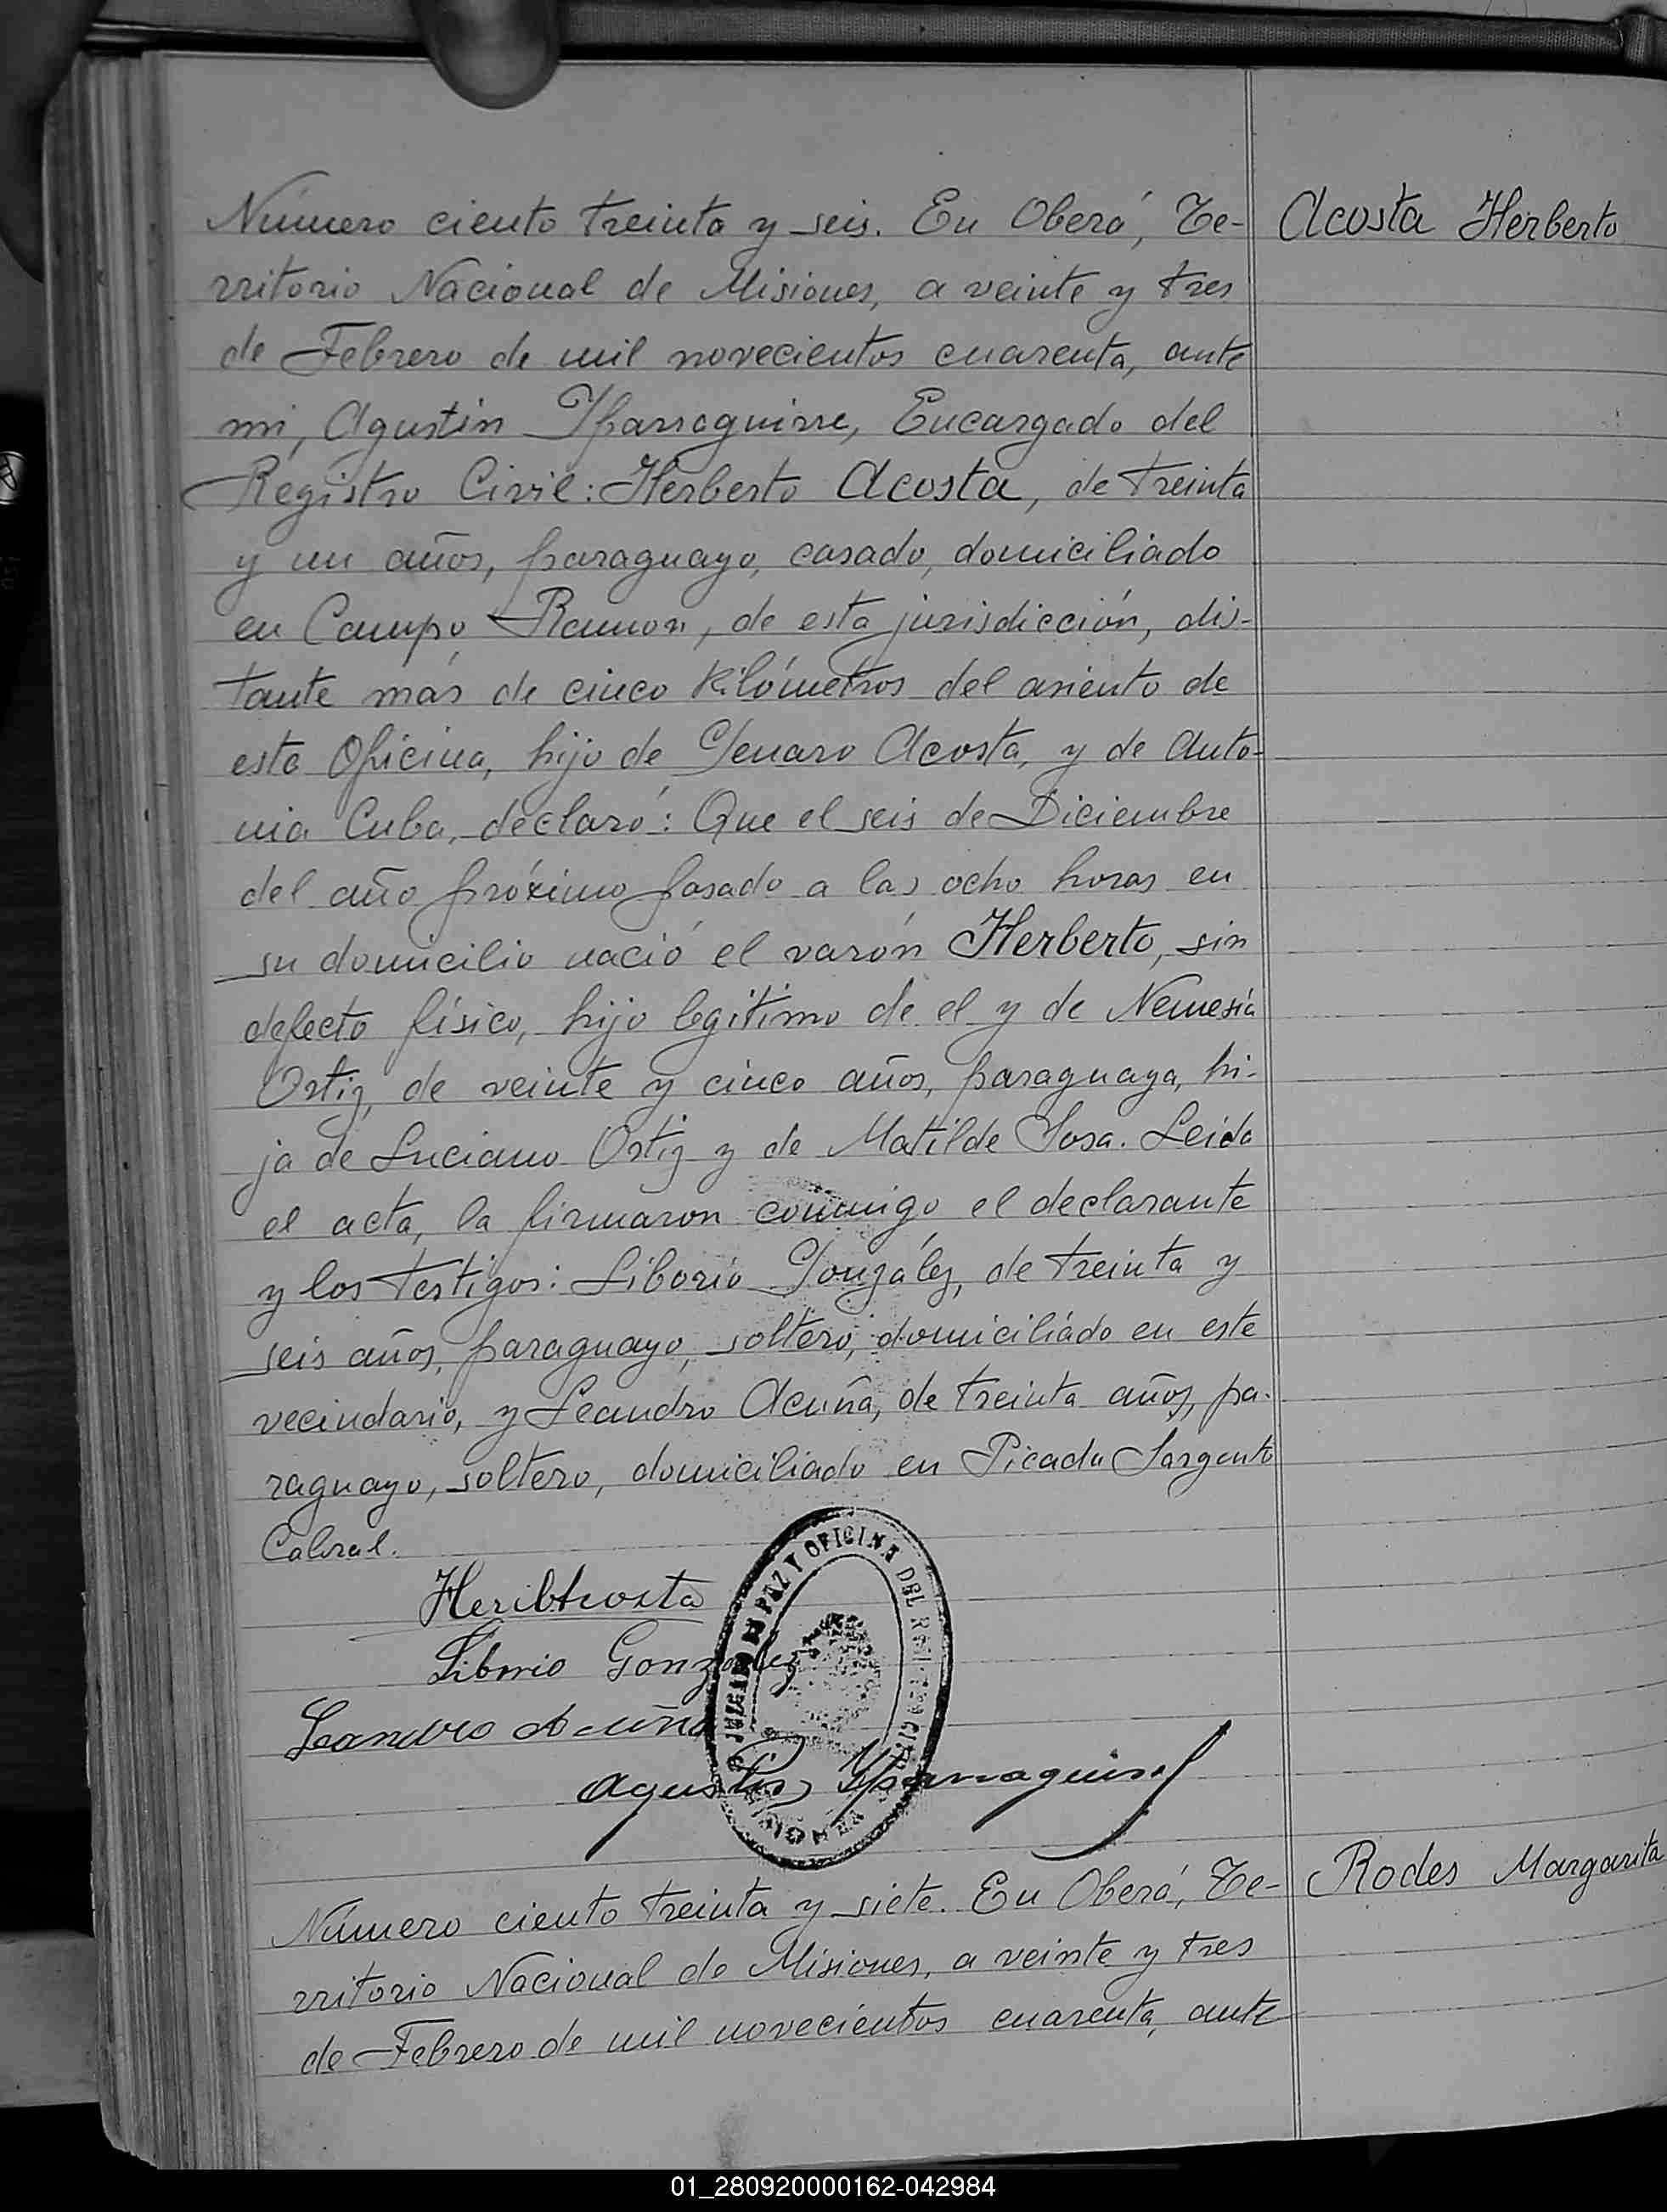 Número ciento treinta y seis. En Oberá, Te-
rritorio Nacional de Misiones, a veinte y tres
de Febrero de mil novecientos cuarenta, ante
mi, Agustin Yparraguirre, Encargado del
Registro Civil: Herberto Acosta, de treinta
y un años, paraguayo, casado, domiciliado
en Campo Ramon, de esta jurisdicción, dis-
tante más de cinco kilómetros del asiento de
esta Oficina, hijo de Genaro Acosta, y de Anto-
nia Cuba, declaró: Que el seis de Diciembre
del año próximo pasado a las ocho horas en
su domicilio nació el varón Herberto, sin
defecto físico, hijo legitimo de el y de Nemesia
Ortiz, de veinte y cinco años, paraguaya, hi-
ja de Luciano Ortiz y de Matilde Sosa. Leida
el acta, la firmaron conmigo el declarante
y los testigos: Liborio González, de treinta y
seis años, paraguayo, soltero, domiciliado en este
vecindario, y Leandro Acuña, de treinta años, pa-
raguayo, soltero, domiciliado en Picada Sargento
Cabral.
Liborio Gonzalez
Leandro Acuña
Agustin Yparraguirre
JUZGADO DE PAZ Y OFICINA DEL REGISTRO CIVIL
Número ciento treinta y siete. En Oberá, Te-
rritorio Nacional de Misiones, a veinte y tres
de Febrero de mil novecientos cuarenta, ante
Acosta Herberto
Rodes Margarita
01_280920000162-042984